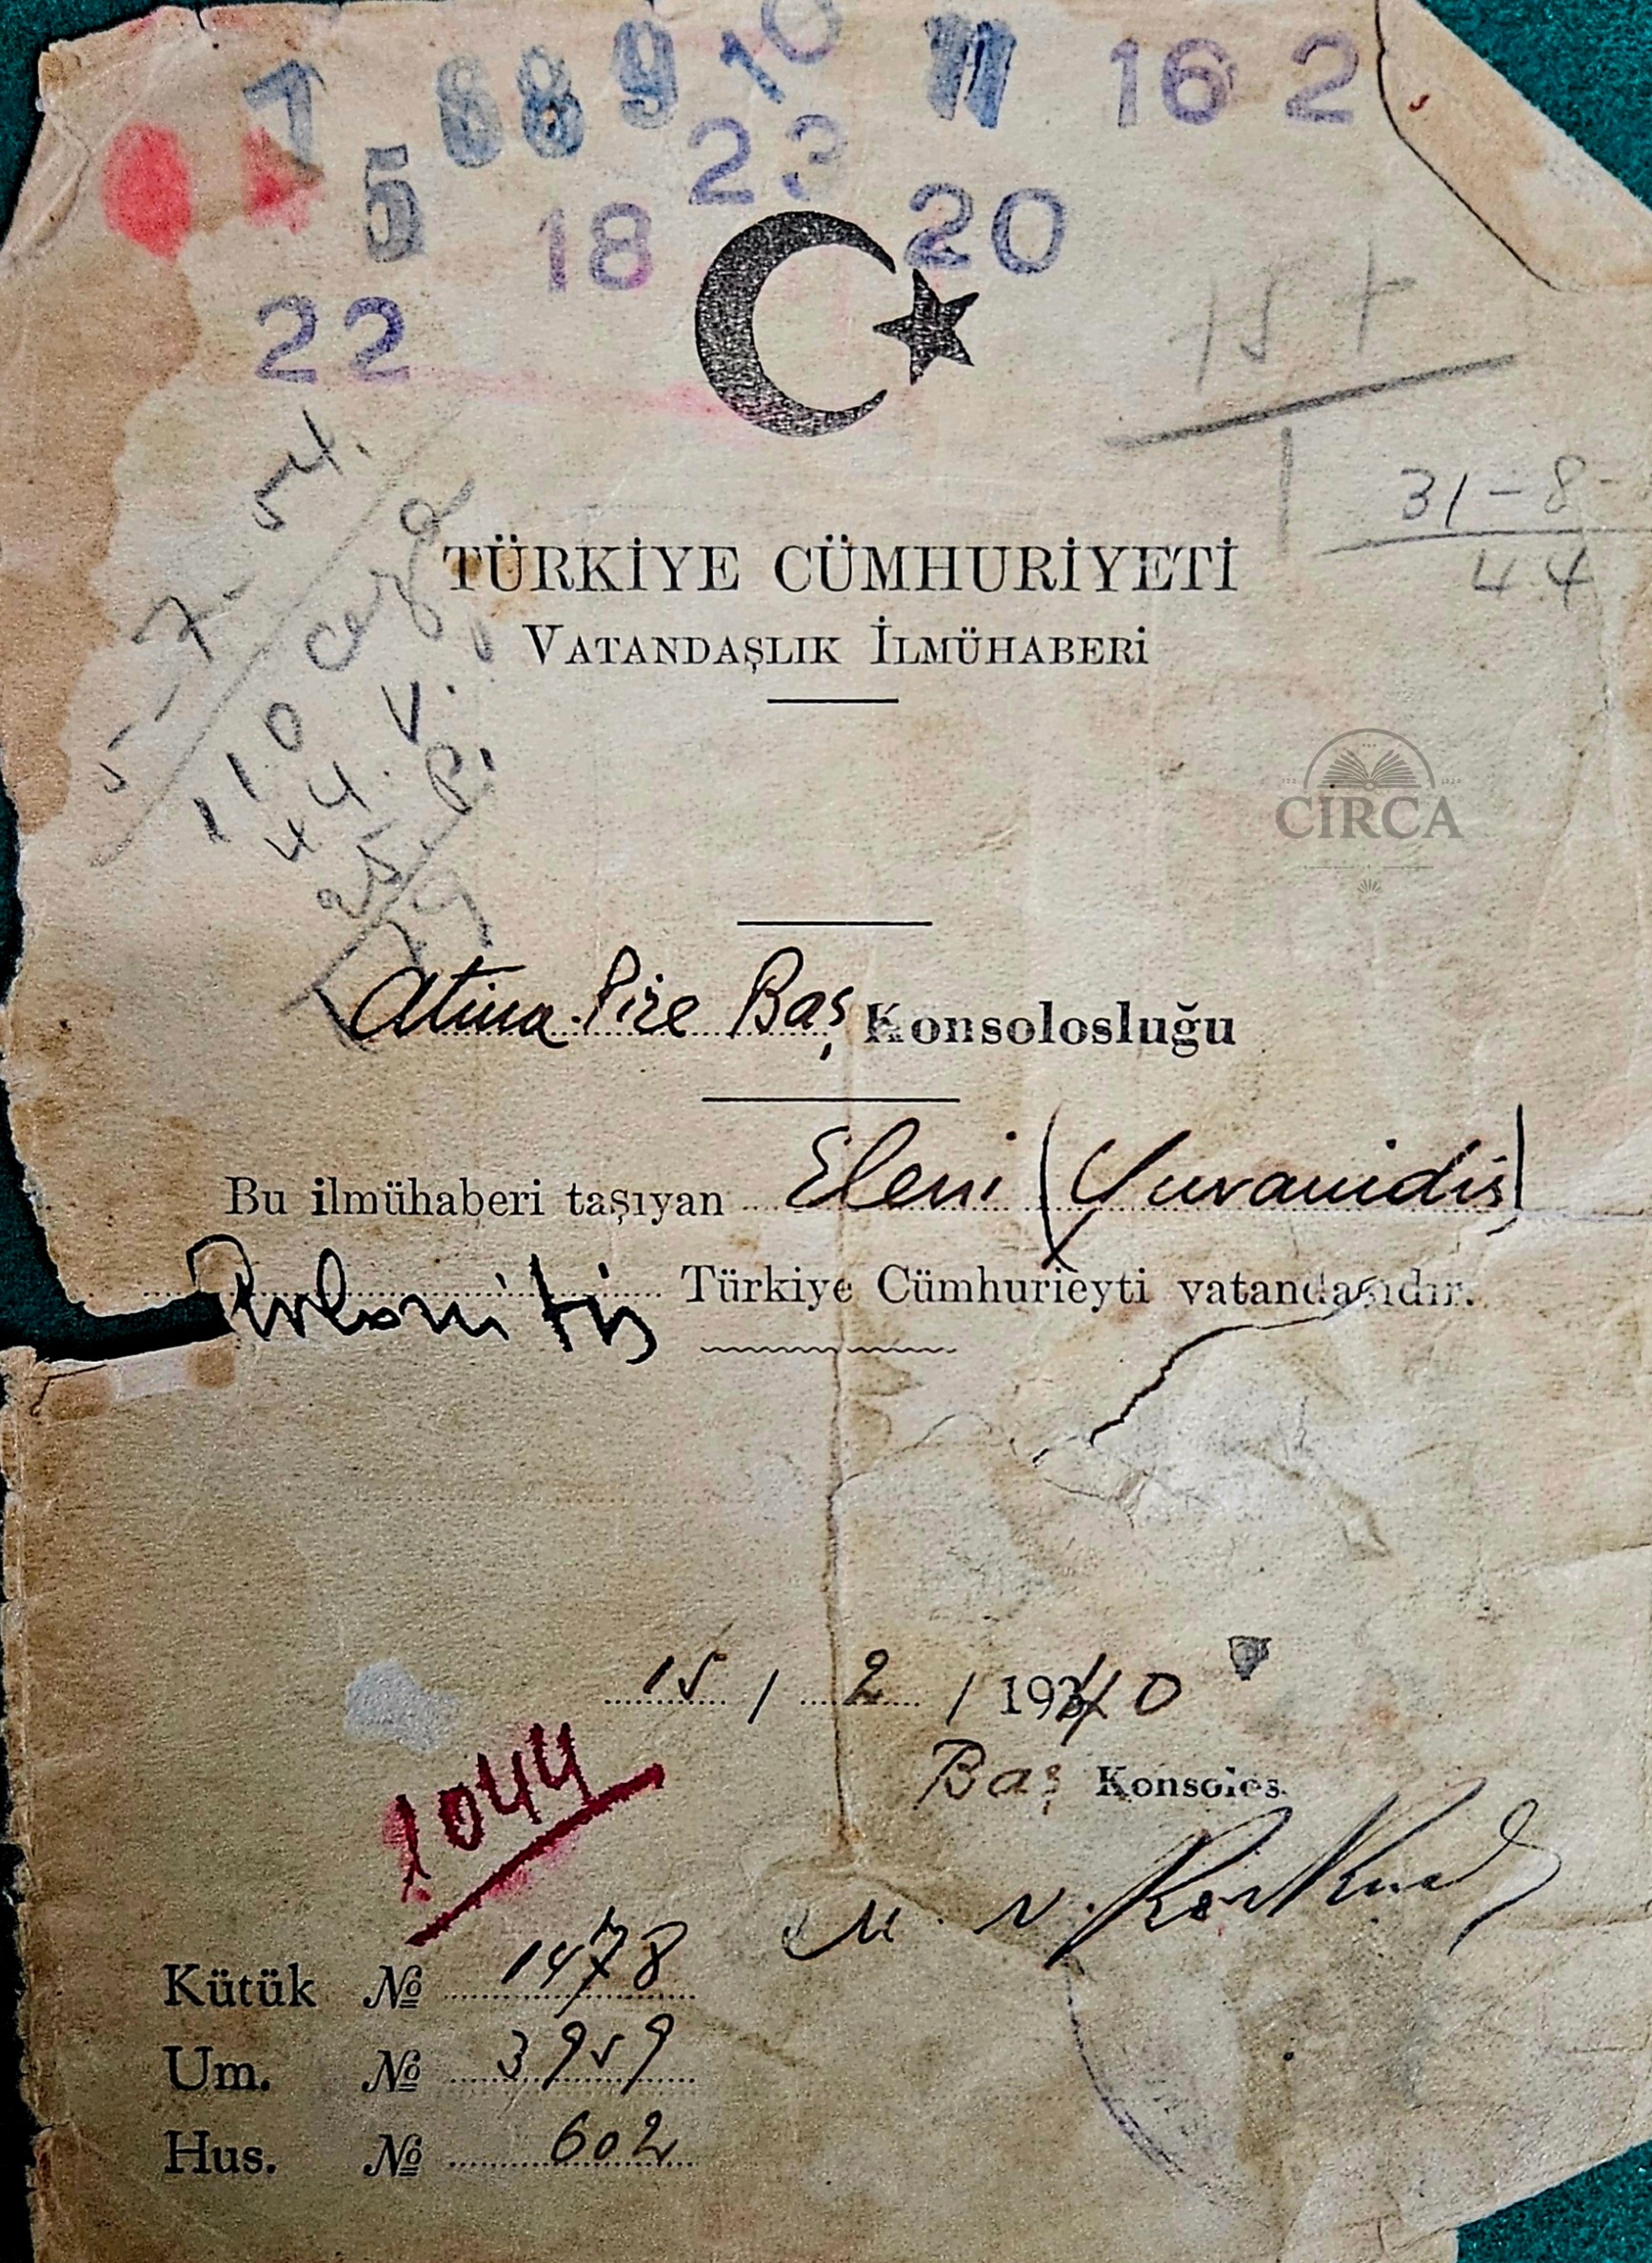 7 6 8 8 9 10 11 16 2
5 18 23 20
22
15 +
1
31-8-
44
5-7-54.
ceza
TÜRKİYE CÜMHURİYETİ
VATANDAŞLIK İLMÜHABERİ
CIRCA
Atina-Pire Baş Konsolosluğu
Bu ilmühaberi taşıyan Eleni (Yuvanidis)
Türkiye Cümhurieyti vatandaşıdır.
15 / 2 / 1940
Baş Konsolos
1044
Kütük № 1478
Um. № 3959
Hus. № 602